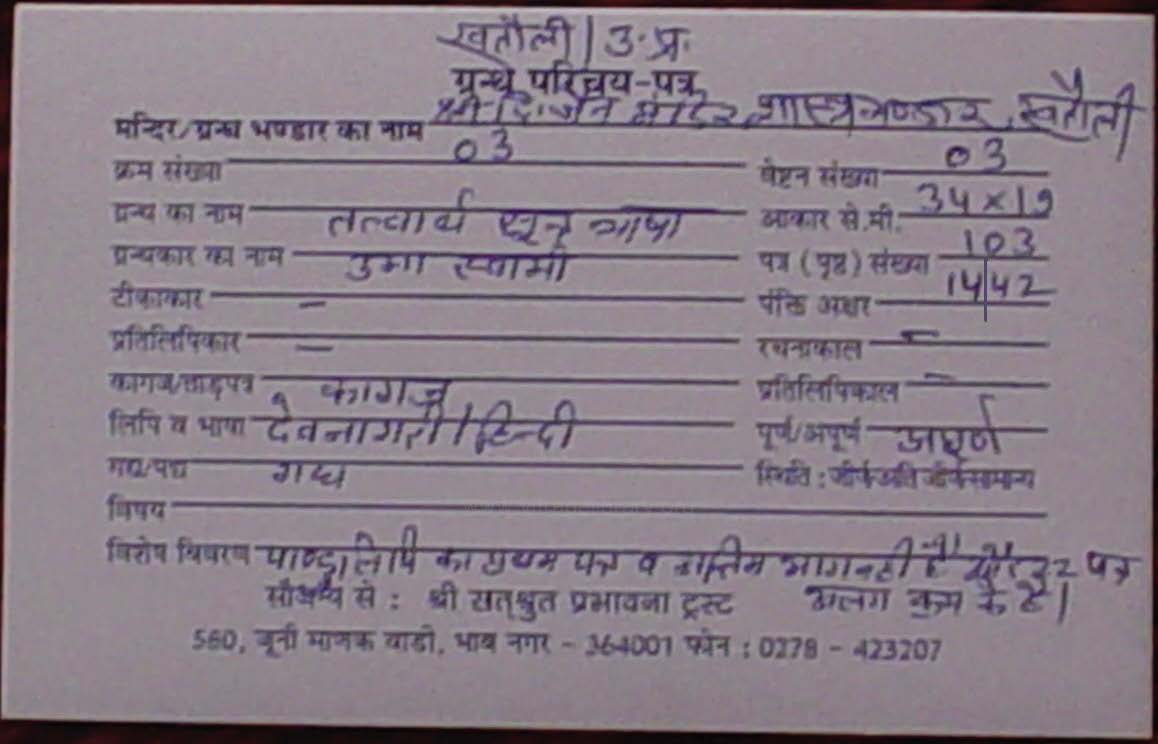 खतौली | उ.प्र.
ग्रन्थ परिचय-पत्र
मन्दिर/ग्रन्थ भण्डार का नाम श्री दि. जैन मंदिर शास्त्र भण्डार, खतौली
क्रम संख्या 03 वेष्टन संख्या 03
ग्रन्थ का नाम तत्वार्थ सूत्र भाषा आकार से.मी. 34 x 19
ग्रन्थकार का नाम उमा स्वामी पत्र (पृष्ठ) संख्या 103
टीकाकार – पंक्ति अक्षर 14|42
प्रतिलिपिकार – रचनाकाल –
कागज/ताड़पत्र कागज प्रतिलिपिकाल –
लिपि व भाषा देवनागरी / हिन्दी पूर्ण/अपूर्ण अपूर्ण
गद्य/पद्य गद्य स्थिति : जीर्ण अति जीर्ण सामान्य
विषय
विशेष विवरण पाण्डुलिपि का प्रथम पत्र व अन्तिम भाग नहीं है पत्र
अलग क्रम के है।
सौजन्य से : श्री सत्श्रुत प्रभावना ट्रस्ट
580, जूनी माणक वाडी, भाव नगर - 364001 फोन : 0278 - 423207